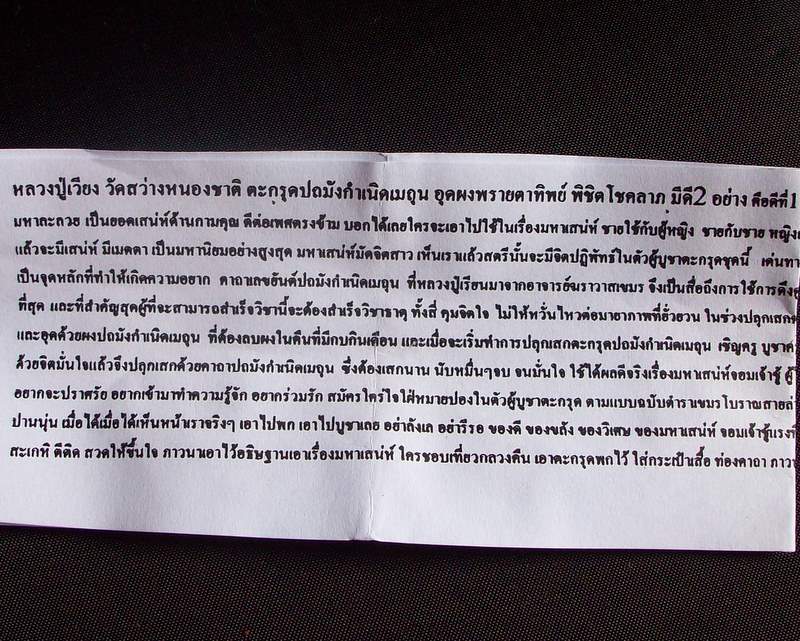 หลวงปู่เวียง วัดสว่างหนองชาติ ตะกรุดปถมังกำเนิดเมถุน อุดผงพรายตาทิพย์ พิชิตโชคลาภ มีดี2 อย่าง คือดีที่1
มหาละลวย เป็นยอดเสน่ห์ด้านกามคุณ ดีต่อเพศตรงข้าม บอกได้เลยใครจะเอาไปใช้ในเรื่องมหาเสน่ห์ ชายใช้กับผู้หญิง ชายกับชาย
แล้วจะมีเสน่ห์ มีเมตตา เป็นมหานิยมอย่างสูงสุด มหาเสน่ห์มัดจิตสาว เห็นเราแล้วสตรีนั้นจะมีจิตปฏิพัทธ์ในตัวผู้บูชาตะกรุดชุดนี้
เป็นจุดหลักที่ทำให้เกิดความอยาก คาถาเลขยันต์ปถมังกำเนิดเมถุน ที่หลวงปู่เรียนมาจากอาจารย์ฆราวาสเขมร จึงเป็นสื่อถึงการใช้การดึงดูด
ที่สุด และที่สำคัญสุดผู้ที่จะสามารถสำเร็จวิชานี้จะต้องสำเร็จวิชาธาตุ ทั้งสี่ คุมจิตใจ ไม่ให้หวั่นไหวต่อมายาภาพที่ยั่วยวน ในช่วงปลุกเสก
และอุดด้วยผงปถมังกำเนิดเมถุน ที่ต้องลบผงในคืนที่มีกบกินเดือน และเมื่อจะเริ่มทำการปลุกเสกตะกรุดปถมังกำเนิดเมถุน เชิญครู บูชาครู
ด้วยจิตมั่นใจแล้วจึงปลุกเสกด้วยคาถาปถมังกำเนิดเมถุน ซึ่งต้องเสกนาน นับหมื่นๆจบ จนมั่นใจ ใช้ได้ผลดีจริงเรื่องมหาเสน่ห์จอมเจ้าชู้
อยากจะปราศรัย อยากเข้ามาทำความรู้จัก อยากร่วมรัก สมัครใคร่ใจใฝ่หมายปองในตัวผู้บูชาตะกรุด ตามแบบฉบับตำราเขมรโบราณสาย
ปานนุ่น เมื่อได้เมื่อได้เห็นหน้าเราจริงๆ เอาไปพก เอาไปบูชาเลย อย่าลังเล อย่ารีรอ ของดี ของขลัง ของวิเศษ ของมหาเสน่ห์ จอมเจ้าชู้แรง
สะเกหิ ตีติด สวดให้ขึ้นใจ ภาวนาเอาไว้อธิษฐานเอาเรื่องมหาเสน่ห์ ใครชอบเที่ยวกลางคืน เอาตะกรุดพกไว้ ใส่กระเป๋าเสื้อ ท่องคาถา